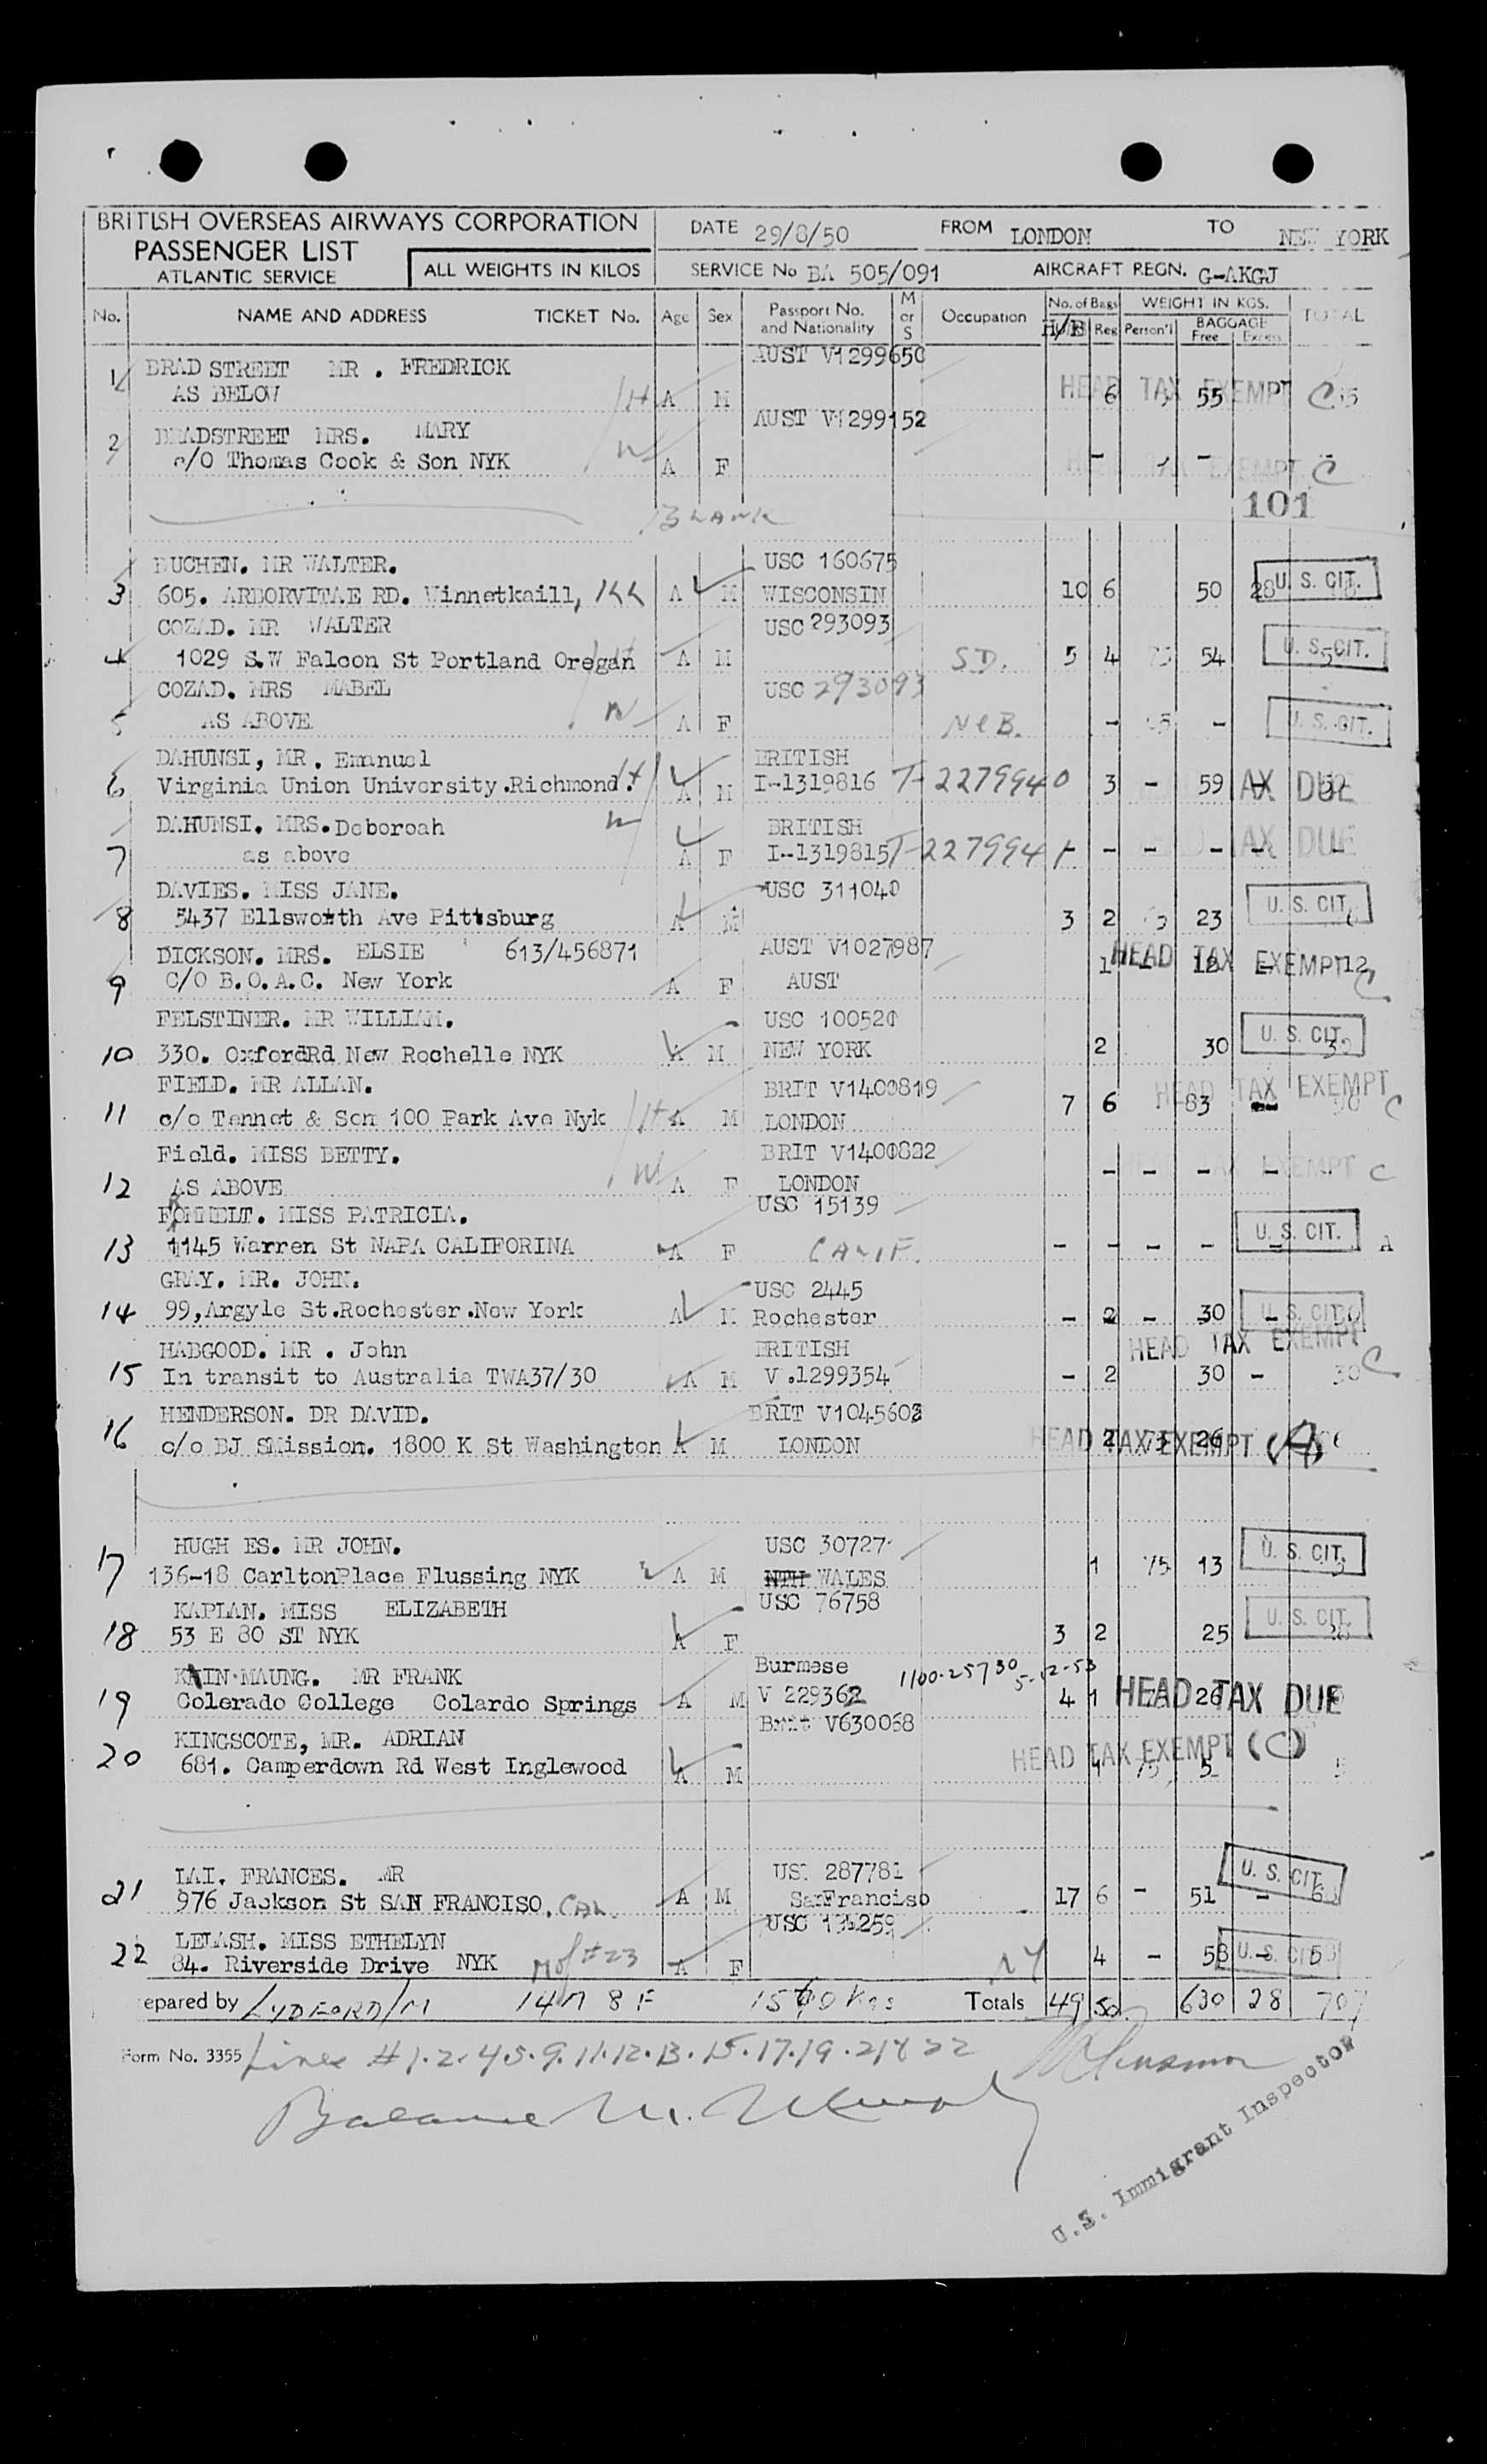 BRITISH OVERSEAS AIRWAYS CORPORATION
PASSENGER LIST
ATLANTIC SERVICE
ALL WEIGHTS IN KILOS
DATE 29/8/50 FROM LONDON TO NEW YORK
SERVICE No BA 505/091 AIRCRAFT REGN. G-AKGJ
No. NAME AND ADDRESS TICKET No. Age Sex Passport No. and Nationality M or S Occupation No. of Bags H/B Reg WEIGHT IN KGS. Person'l BAGGAGE Free Excess TOTAL
BRADSTREET MR . FREDRICK AUST V1299650
1 AS BELOW H A M 6 55 HEAD TAX EXEMPT C
BRADSTREET MRS. MARY AUST V1299152
2 c/O Thomas Cook & Son NYK W A F - - HEAD TAX EXEMPT C
101
BLANK
BUCHEN. MR WALTER. USC 160675
3 605. ARBORVITAE RD. Winnetkaill, A M WISCONSIN 10 6 50 28 U. S. CIT.
COZAD. MR WALTER USC 293093
4 1029 S.W Falcon St Portland Oregan H A M S.D. 5 4 75 54 U. S. CIT.
COZAD. MRS MABEL USC 293093
5 AS ABOVE W A F NEB. - - U. S. CIT.
DAHUNSI, MR. Emanuel BRITISH
6 Virginia Union University.Richmond. H A M I-1319816 T-2279940 3 - 59 - TAX DUE
DAHUNSI. MRS. Deboroah W BRITISH
7 as above A F I-1319815 T-2279941 - - - - HEAD TAX DUE
DAVIES. MISS JANE. USC 311040
8 5437 Ellsworth Ave Pittsburg A M 3 2 23 U. S. CIT.
DICKSON. MRS. ELSIE 613/456871 AUST V1027987
9 C/O B.O.A.C. New York A F AUST 1 - 12 - 12 HEAD TAX EXEMPT C
FELSTINER. MR WILLIAM. USC 100520
10 330. OxfordRd New Rochelle NYK A M NEW YORK 2 30 U. S. CIT.
FIELD. MR ALLAN. BRIT V1400819
11 c/o Tennet & Son 100 Park Ave Nyk H A M LONDON 7 6 83 HEAD TAX EXEMPT C
Field. MISS BETTY. BRIT V1400822
12 AS ABOVE W A F LONDON - - - - HEAD TAX EXEMPT C
FROMMELT. MISS PATRICIA. USC 15139
13 1145 Warren St NAPA CALIFORINA A F CALIF. - - - - - U. S. CIT. A
GRAY. MR. JOHN. USC 2445
14 99,Argyle St.Rochester.New York A M Rochester - 2 - 30 - U. S. CIT.
HABGOOD. MR . John BRITISH
15 In transit to Australia TWA37/30 A M V.1299354 - 2 30 - 30 HEAD TAX EXEMPT C
HENDERSON. DR DAVID. BRIT V1045603
16 c/o BJ SMission. 1800 K St Washington A M LONDON 2 75 26 HEAD TAX EXEMPT (A)
HUGH ES. MR JOHN. USC 30727
17 136-18 CarltonPlace Flussing NYK A M NTH WALES 1 75 13 U. S. CIT.
KAPLAN. MISS ELIZABETH USC 76758
18 53 E 80 ST NYK A F 3 2 25 U. S. CIT.
KHIN·MAUNG. MR FRANK Burmese 1100-25730 5-12-53
19 Colerado College Colardo Springs A M V 229362 4 1 75 26 HEAD TAX DUE
KINGSCOTE, MR. ADRIAN Brit V630068
20 681. Camperdown Rd West Inglewood A M 1 75 5 5 HEAD TAX EXEMPT (C)
LAI. FRANCES. MR US. 287781
21 976 Jackson St SAN FRANCISO. CAL. A M SanFranciso 17 6 - 51 - U. S. CIT.
LELASH. MISS ETHELYN
22 84. Riverside Drive NYK M of #23 A F NY 4 - 53 - 53 U. S. CIT.
epared by LYDFORD/M 14M 8F Totals 49 50 630 28 707
Form No. 3355 Lines #1.2.4.5.9.11.12.13.15.17.19.21 & 22
Balance
U.S. Immigrant Inspector